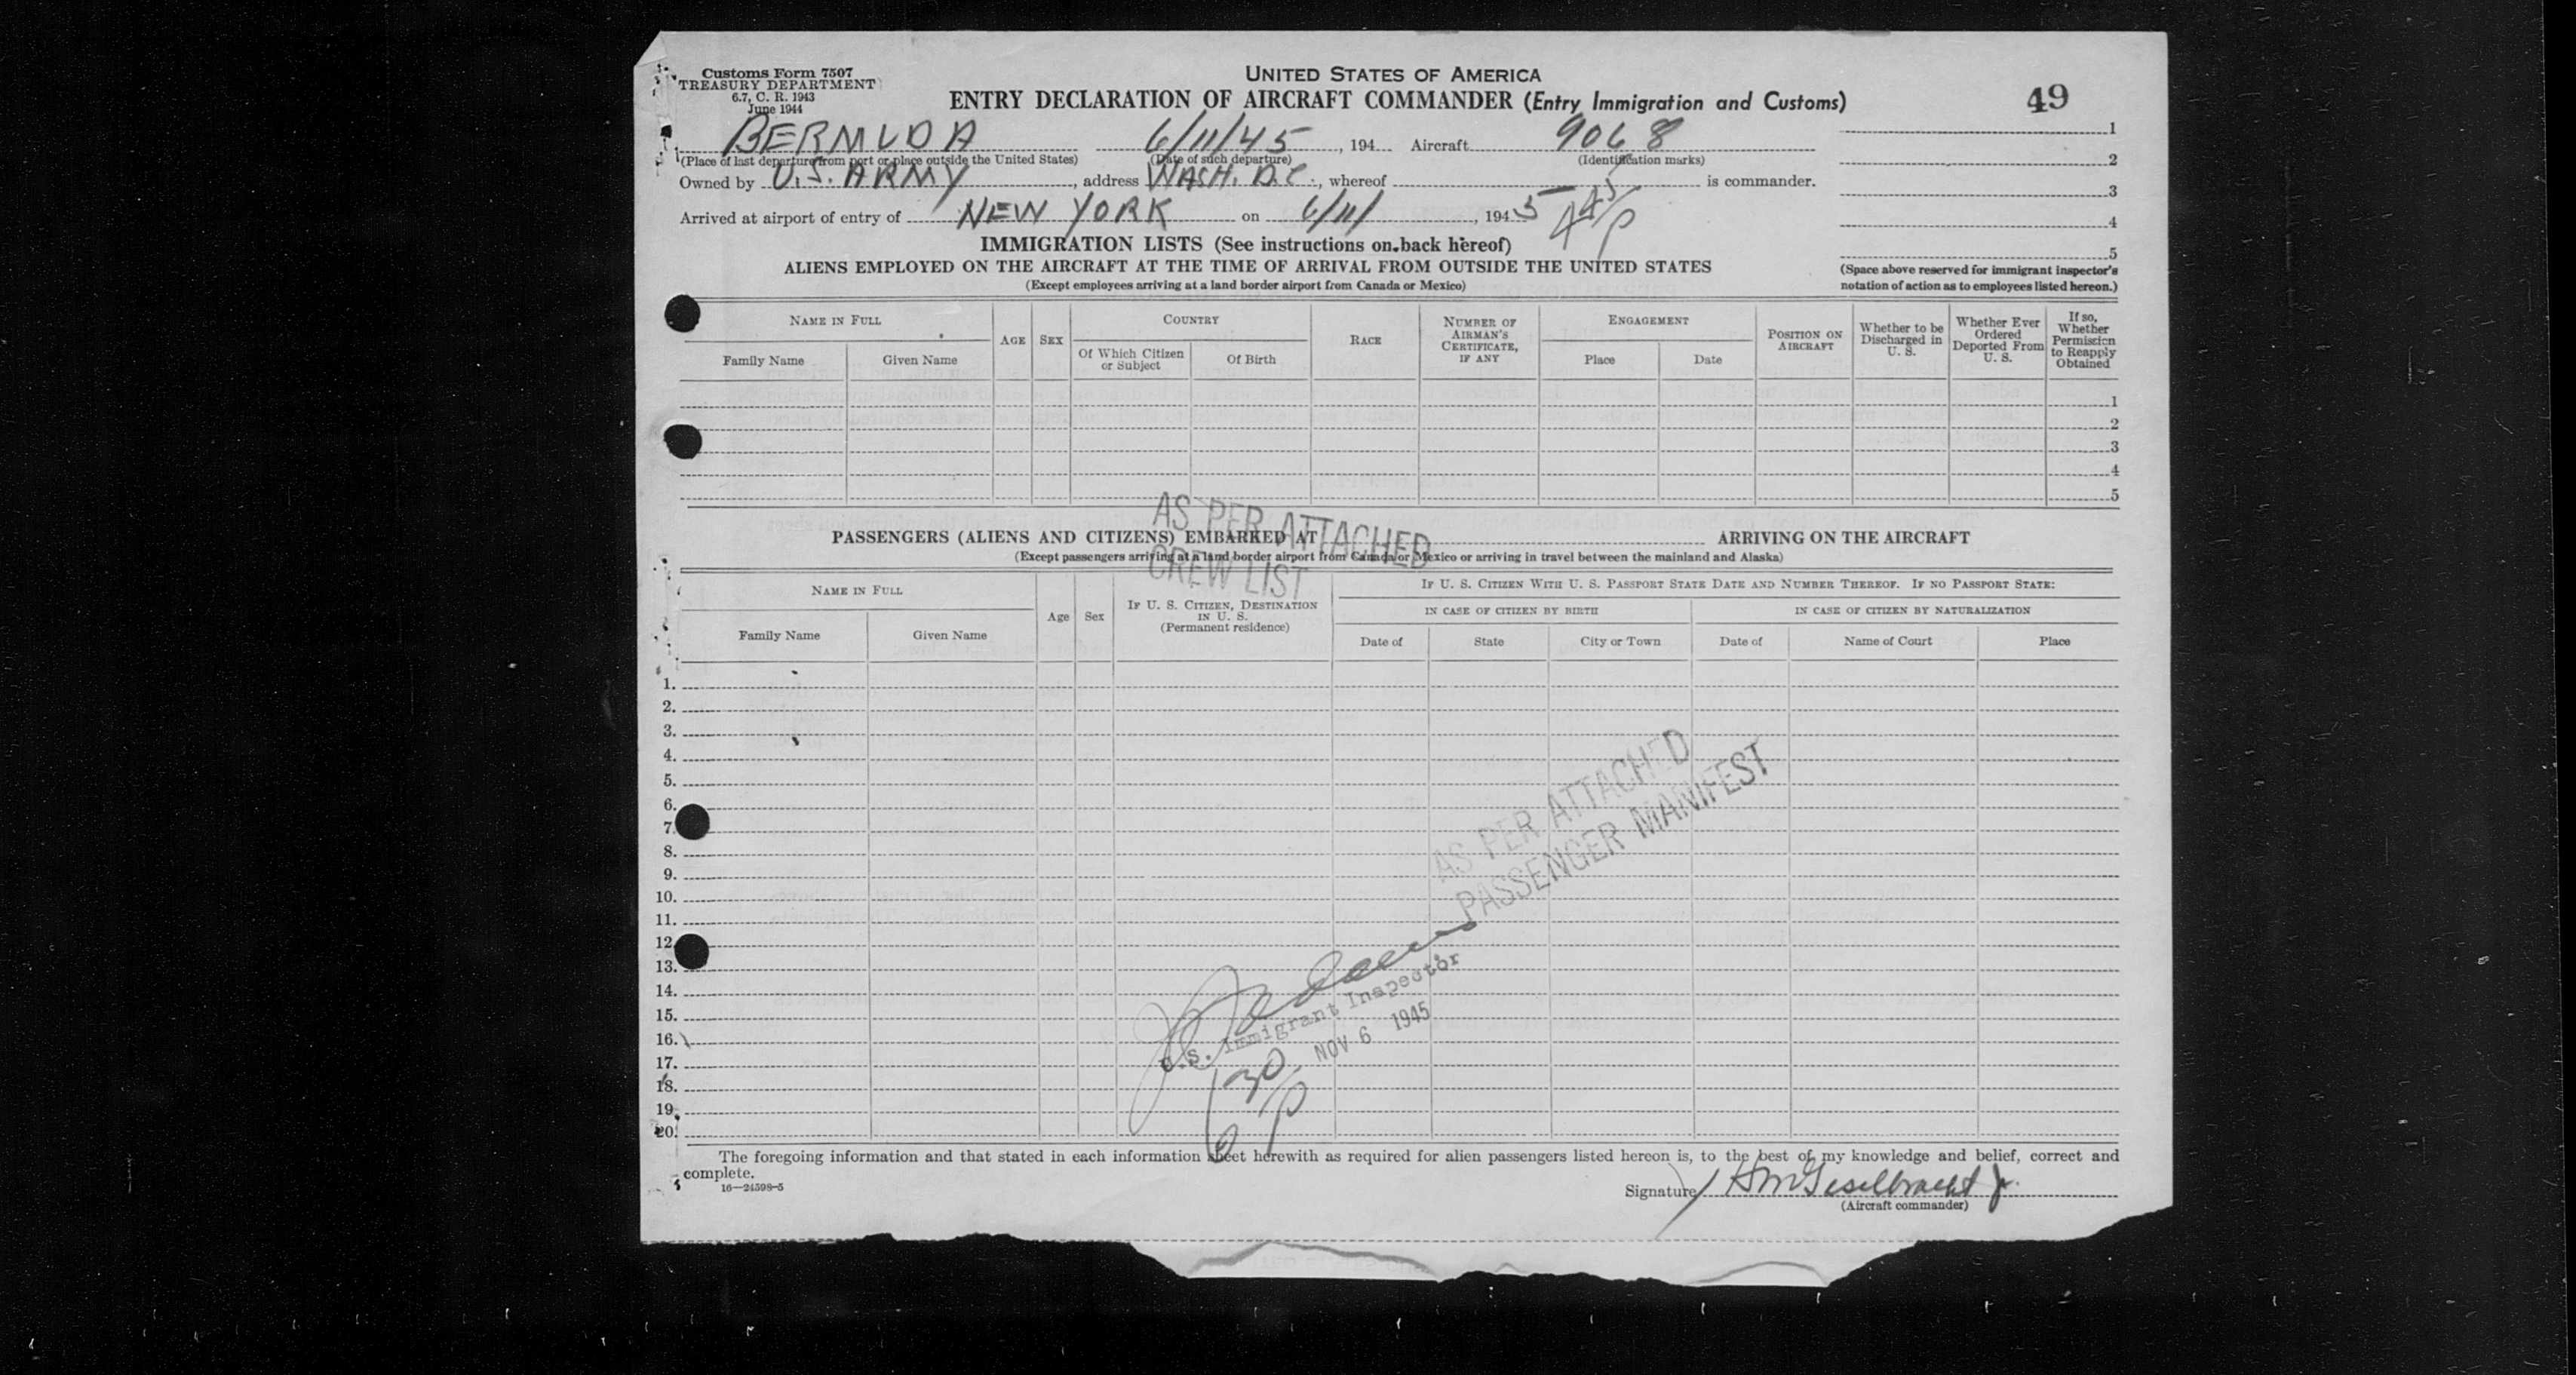 Customs Form 7507
TREASURY DEPARTMENT
6.7, C. R. 1943
June 1944
UNITED STATES OF AMERICA
ENTRY DECLARATION OF AIRCRAFT COMMANDER (Entry Immigration and Customs)
49
BERMUDA 6/11/45, 194 Aircraft 9068
(Place of last departure from port or place outside the United States) (Date of such departure) (Identification marks)
Owned by U.S. ARMY, address WASH. D.C., whereof is commander.
Arrived at airport of entry of NEW YORK on 6/11/, 1945 445/P
1
2
3
4
5
(Space above reserved for immigrant inspector's
notation of action as to employees listed hereon.)
IMMIGRATION LISTS (See instructions on back hereof)
ALIENS EMPLOYED ON THE AIRCRAFT AT THE TIME OF ARRIVAL FROM OUTSIDE THE UNITED STATES
(Except employees arriving at a land border airport from Canada or Mexico)
NAME IN FULL
Family Name Given Name
AGE
SEX
COUNTRY
Of Which Citizen or Subject
Of Birth
RACE
NUMBER OF AIRMAN'S CERTIFICATE, IF ANY
ENGAGEMENT
Place Date
POSITION ON AIRCRAFT
Whether to be Discharged in U. S.
Whether Ever Ordered Deported From U. S.
If so, Whether Permission to Reapply Obtained
1
2
3
4
5
AS PER ATTACHED
CREW LIST
PASSENGERS (ALIENS AND CITIZENS) EMBARKED AT ARRIVING ON THE AIRCRAFT
(Except passengers arriving at a land border airport from Canada or Mexico or arriving in travel between the mainland and Alaska)
NAME IN FULL
Family Name Given Name
Age
Sex
IF U. S. CITIZEN, DESTINATION IN U. S.
(Permanent residence)
IF U. S. CITIZEN WITH U. S. PASSPORT STATE DATE AND NUMBER THEREOF. IF NO PASSPORT STATE:
IN CASE OF CITIZEN BY BIRTH IN CASE OF CITIZEN BY NATURALIZATION
Date of State City or Town Date of Name of Court Place
1.
2.
3.
4.
5.
6.
7.
8.
9.
10.
11.
12.
13.
14.
15.
16.
17.
18.
19.
20.
AS PER ATTACHED
PASSENGER MANIFEST
U.S. Immigrant Inspector
NOV 6 1945
6 30/P
The foregoing information and that stated in each information sheet herewith as required for alien passengers listed hereon is, to the best of my knowledge and belief, correct and
complete.
16—24598-5
Signature H M Geselbracht Jr.
(Aircraft commander)